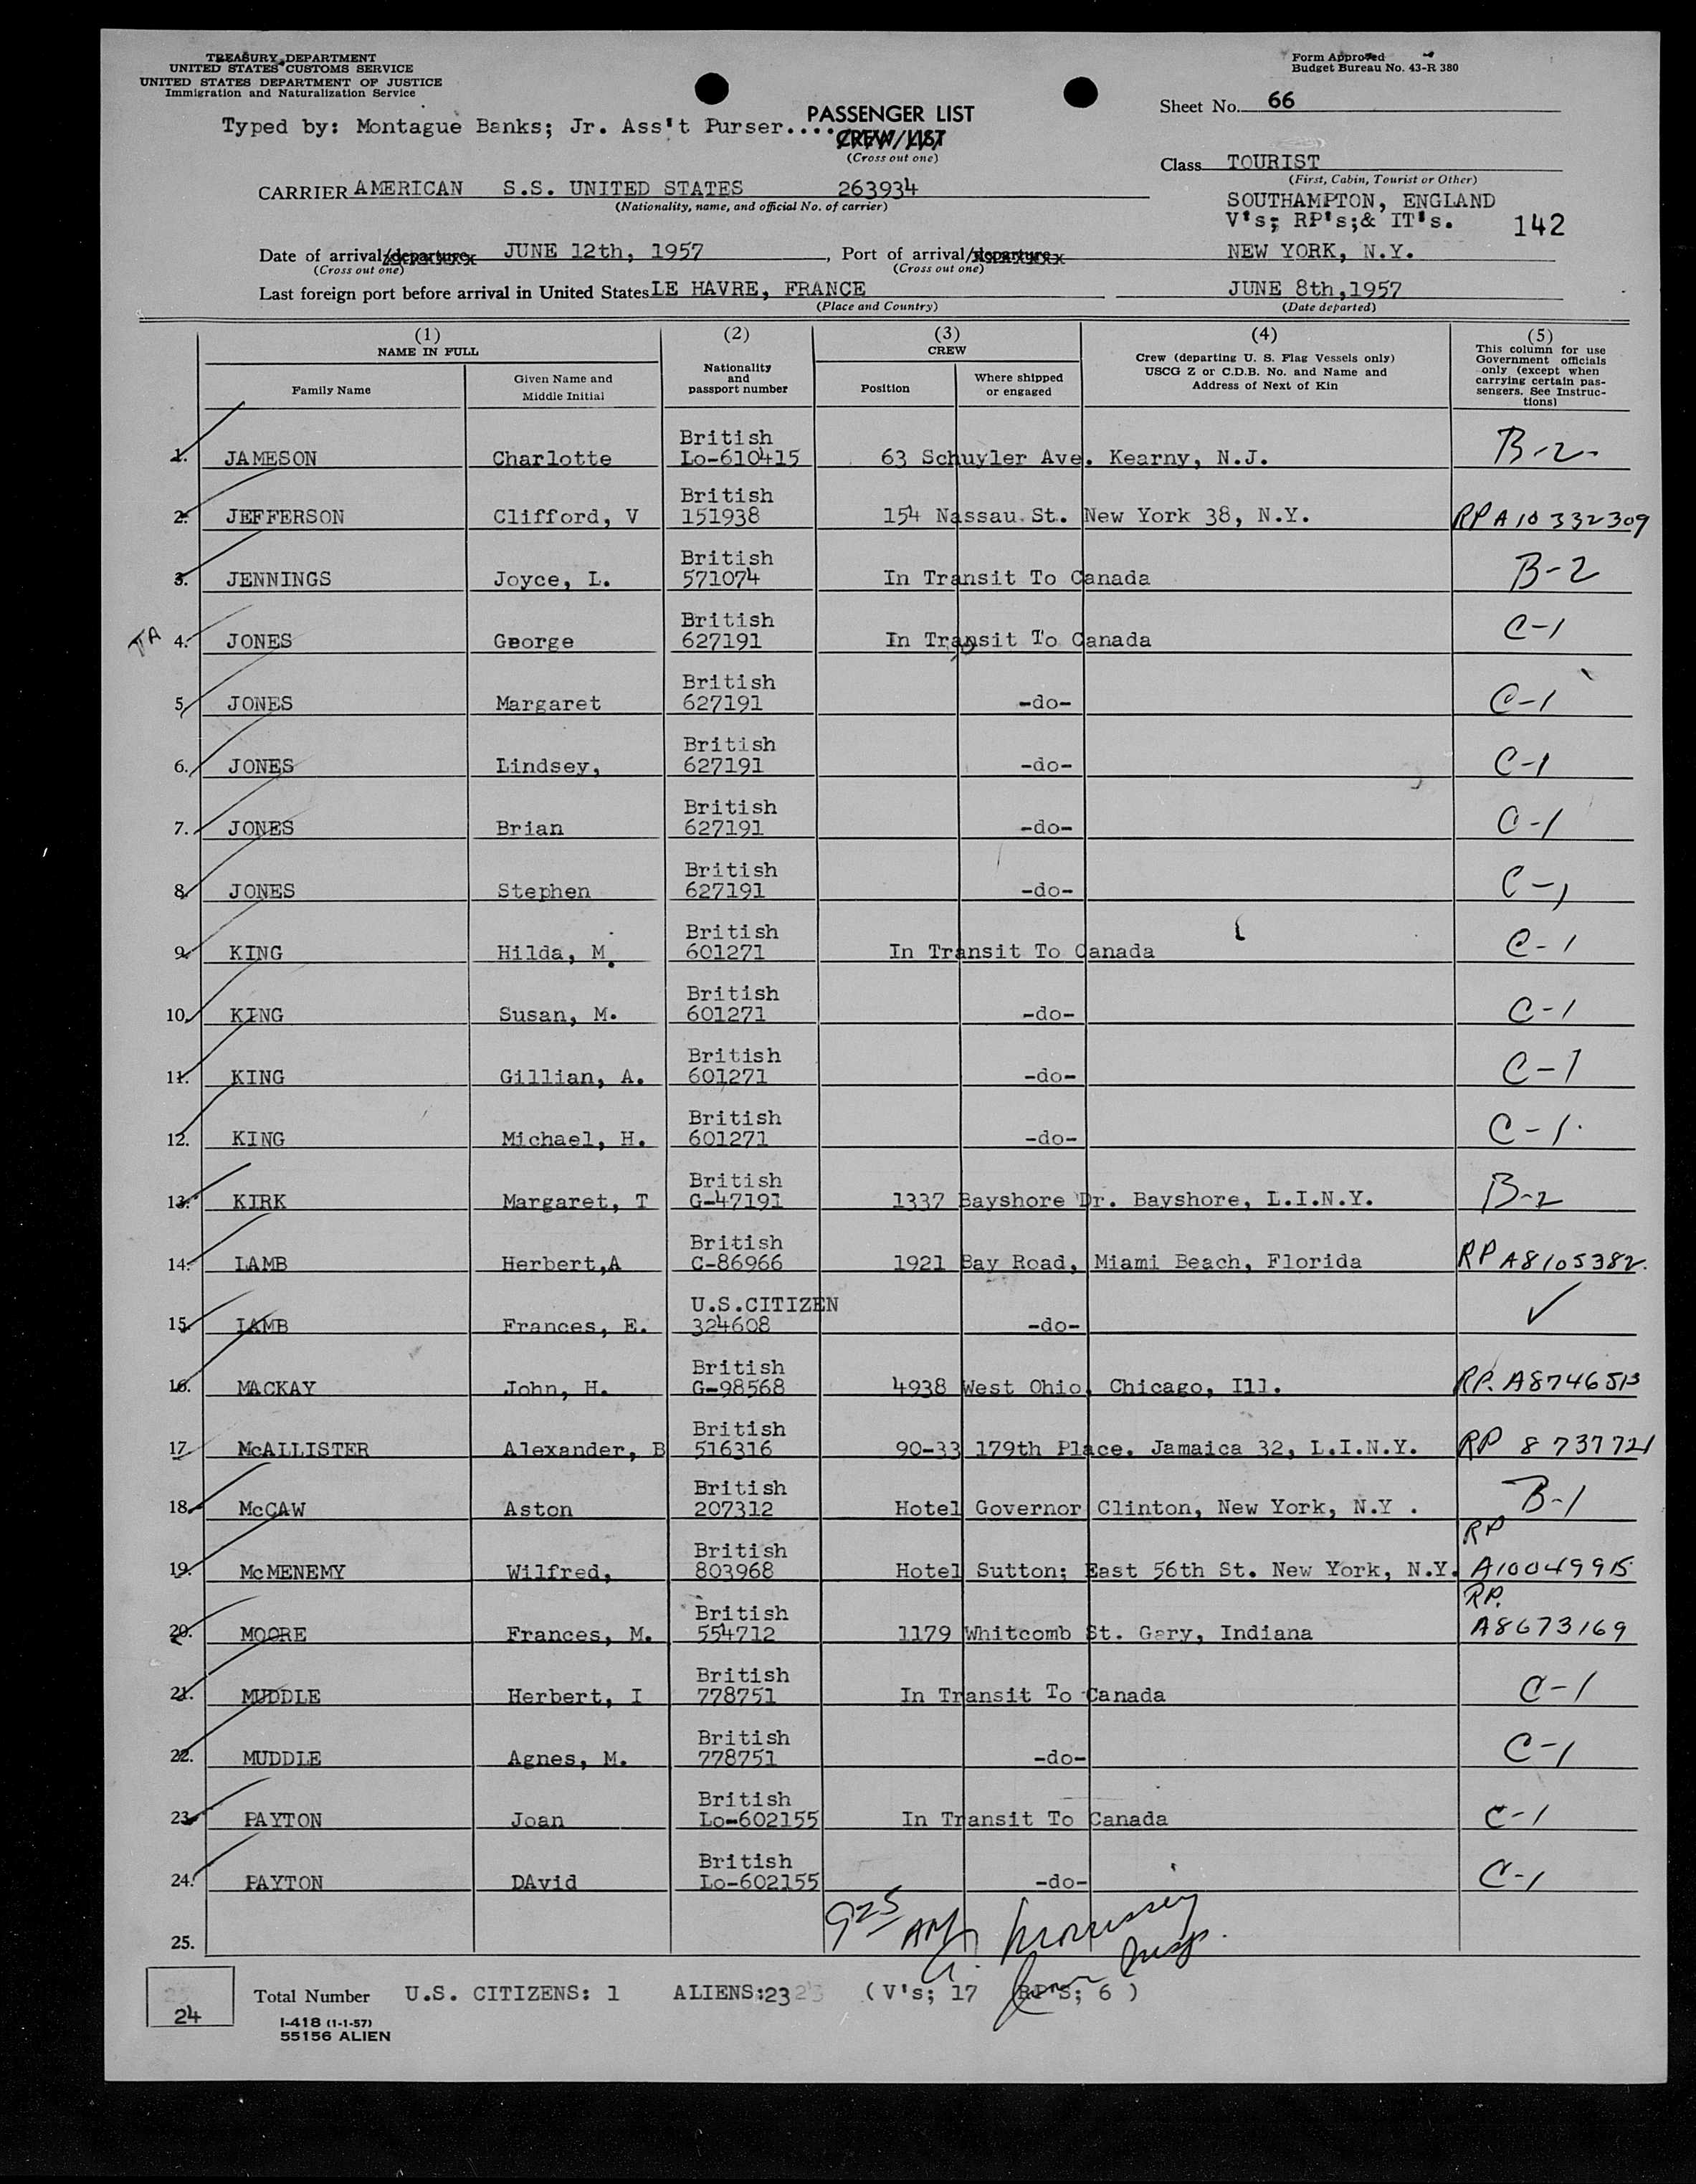 TREASURY DEPARTMENT
UNITED STATES CUSTOMS SERVICE
UNITED STATES DEPARTMENT OF JUSTICE
Immigration and Naturalization Service
Form Approved
Budget Bureau No. 43-R 380
Typed by: Montague Banks; Jr. Ass't Purser....
PASSENGER LIST
CREW LIST
(Cross out one)
Sheet No. 66
Class TOURIST
(First, Cabin, Tourist or Other)
CARRIER AMERICAN S.S. UNITED STATES 263934
(Nationality, name, and official No. of carrier)
SOUTHAMPTON, ENGLAND
V's; RP's;& IT's. 142
Date of arrival/departure JUNE 12th, 1957, Port of arrival/departure NEW YORK, N.Y.
(Cross out one) (Cross out one)
Last foreign port before arrival in United States LE HAVRE, FRANCE JUNE 8th,1957
(Place and Country) (Date departed)
(1) NAME IN FULL
Family Name
Given Name and Middle Initial
(2) Nationality and passport number
(3) CREW
Position
Where shipped or engaged
(4) Crew (departing U. S. Flag Vessels only) USCG Z or C.D.B. No. and Name and Address of Next of Kin
(5) This column for use Government officials only (except when carrying certain passengers. See Instructions)
1. JAMESON Charlotte British Lo-610415 63 Schuyler Ave. Kearny, N.J. B-2
2. JEFFERSON Clifford, V British 151938 154 Nassau St. New York 38, N.Y. RP A10 332309
3. JENNINGS Joyce, L. British 571074 In Transit To Canada B-2
TA 4. JONES George British 627191 In Transit To Canada C-1
5. JONES Margaret British 627191 -do- C-1
6. JONES Lindsey, British 627191 -do- C-1
7. JONES Brian British 627191 -do- C-1
8. JONES Stephen British 627191 -do- C-1
9. KING Hilda, M. British 601271 In Transit To Canada C-1
10. KING Susan, M. British 601271 -do- C-1
11. KING Gillian, A. British 601271 -do- C-1
12. KING Michael, H. British 601271 -do- C-1
13. KIRK Margaret, T British G-47191 1337 Bayshore Dr. Bayshore, L.I.N.Y. B-2
14. LAMB Herbert,A British C-86966 1921 Bay Road, Miami Beach, Florida RP A8105382
15. LAMB Frances, E. U.S.CITIZEN 324608 -do- ✓
16. MACKAY John, H. British G-98568 4938 West Ohio, Chicago, Ill. RP. A8746513
17. McALLISTER Alexander, B British 516316 90-33 179th Place, Jamaica 32, L.I.N.Y. RP 8 737721
18. McCAW Aston British 207312 Hotel Governor Clinton, New York, N.Y . B-1
19. McMENEMY Wilfred, British 803968 Hotel Sutton; East 56th St. New York, N.Y. RP A10049915
20. MOORE Frances, M. British 554712 1179 Whitcomb St. Gary, Indiana RP. A8673169
21. MUDDLE Herbert, I British 778751 In Transit To Canada C-1
22. MUDDLE Agnes, M. British 778751 -do- C-1
23. PAYTON Joan British Lo-602155 In Transit To Canada C-1
24. PAYTON DAvid British Lo-602155 -do- C-1
25. 9 25 AM
24 Total Number U.S. CITIZENS: 1 ALIENS:23 (V's; 17 RP'S; 6 )
I-418 (1-1-57)
55156 ALIEN